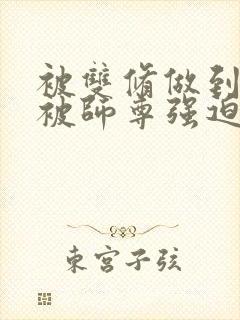 被雙脩做到
被師尊强迫
東宮子弦